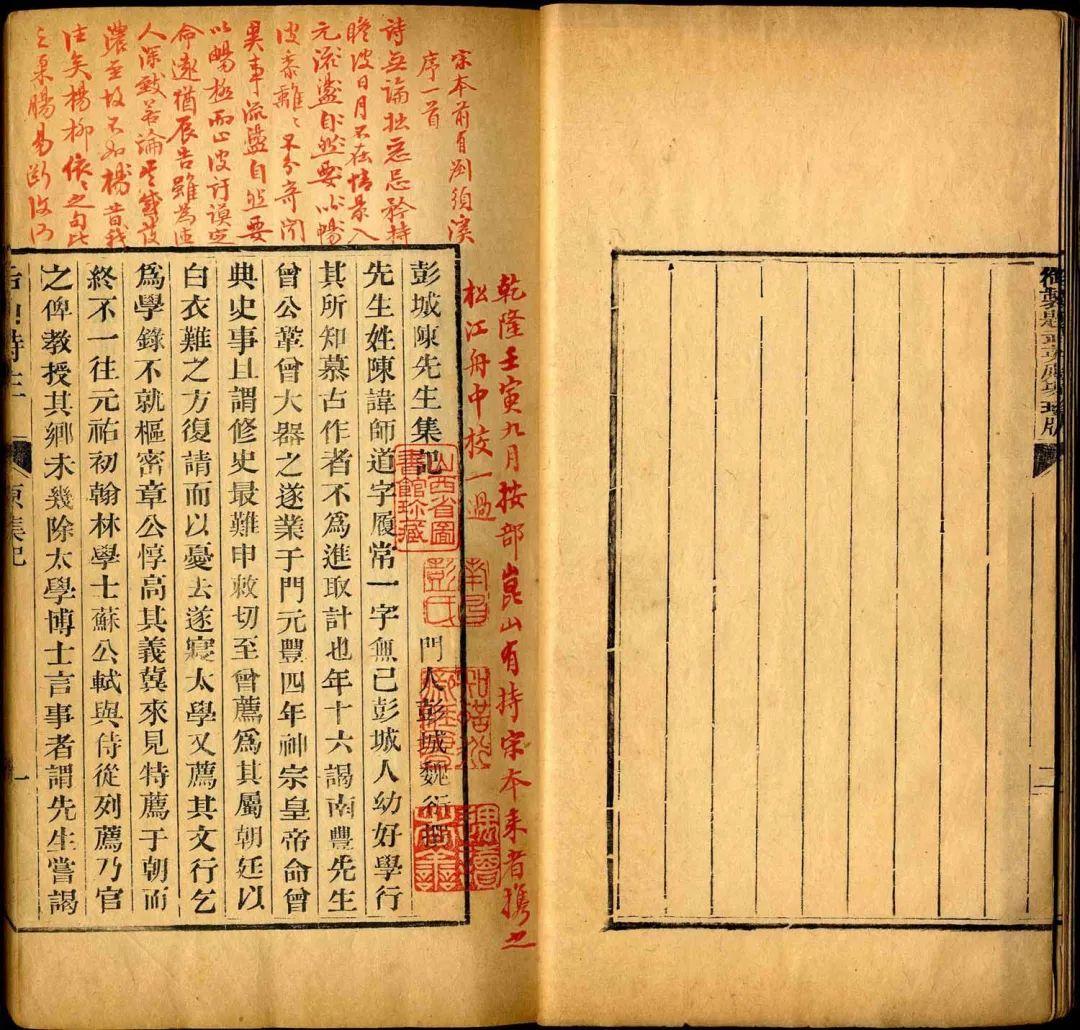 二
宋本前有劉須溪
序一首
詩無論拙惡忌矜持
瞻彼日月不在情景入
元流盪自然要以暢
彼黍離々不分奇聞
異事流盪自然要
以暢極而止彼訏謨定
命遠猶辰告雖為德
人深致若論其感發
濃至故不如楊昔我
往矣楊柳依々之句比
之柔腸易斷復何
乾隆壬寅九月按部崑山有持宋本来者携之
松江舟中校一過
彭城陳先生集記
門人彭城魏衍撰
山西省圖
書館珍藏
南昌
彭氏
先生姓陳諱師道字履常一字無己彭城人幼好學行
其所知慕古作者不爲進取計也年十六謁南豐先生
曾公鞏曾大器之遂業于門元豐四年神宗皇帝命曾
典史事且謂修史最難申敕切至曾薦爲其屬朝廷以
白衣難之方復請而以憂去遂寢太學又薦其文行乞
爲學錄不就樞密章公惇高其義冀來見特薦于朝而
終不一往元祐初翰林學士蘇公軾與侍從列薦乃官
之俾教授其鄉未幾除太學博士言事者謂先生嘗謁
一